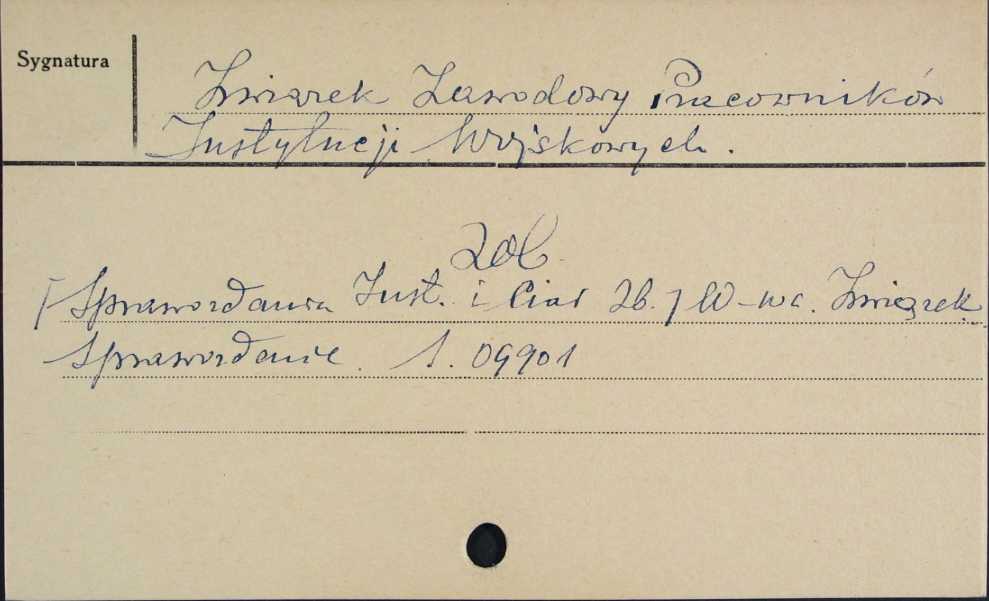 Sygnatura
Związek Zawodowy Pracowników
Instytucji Wojskowych.
Zob.
[Sprawozdania Inst. i Ciał Zb.] W-wa. Związek
Sprawozdanie. S. 09901